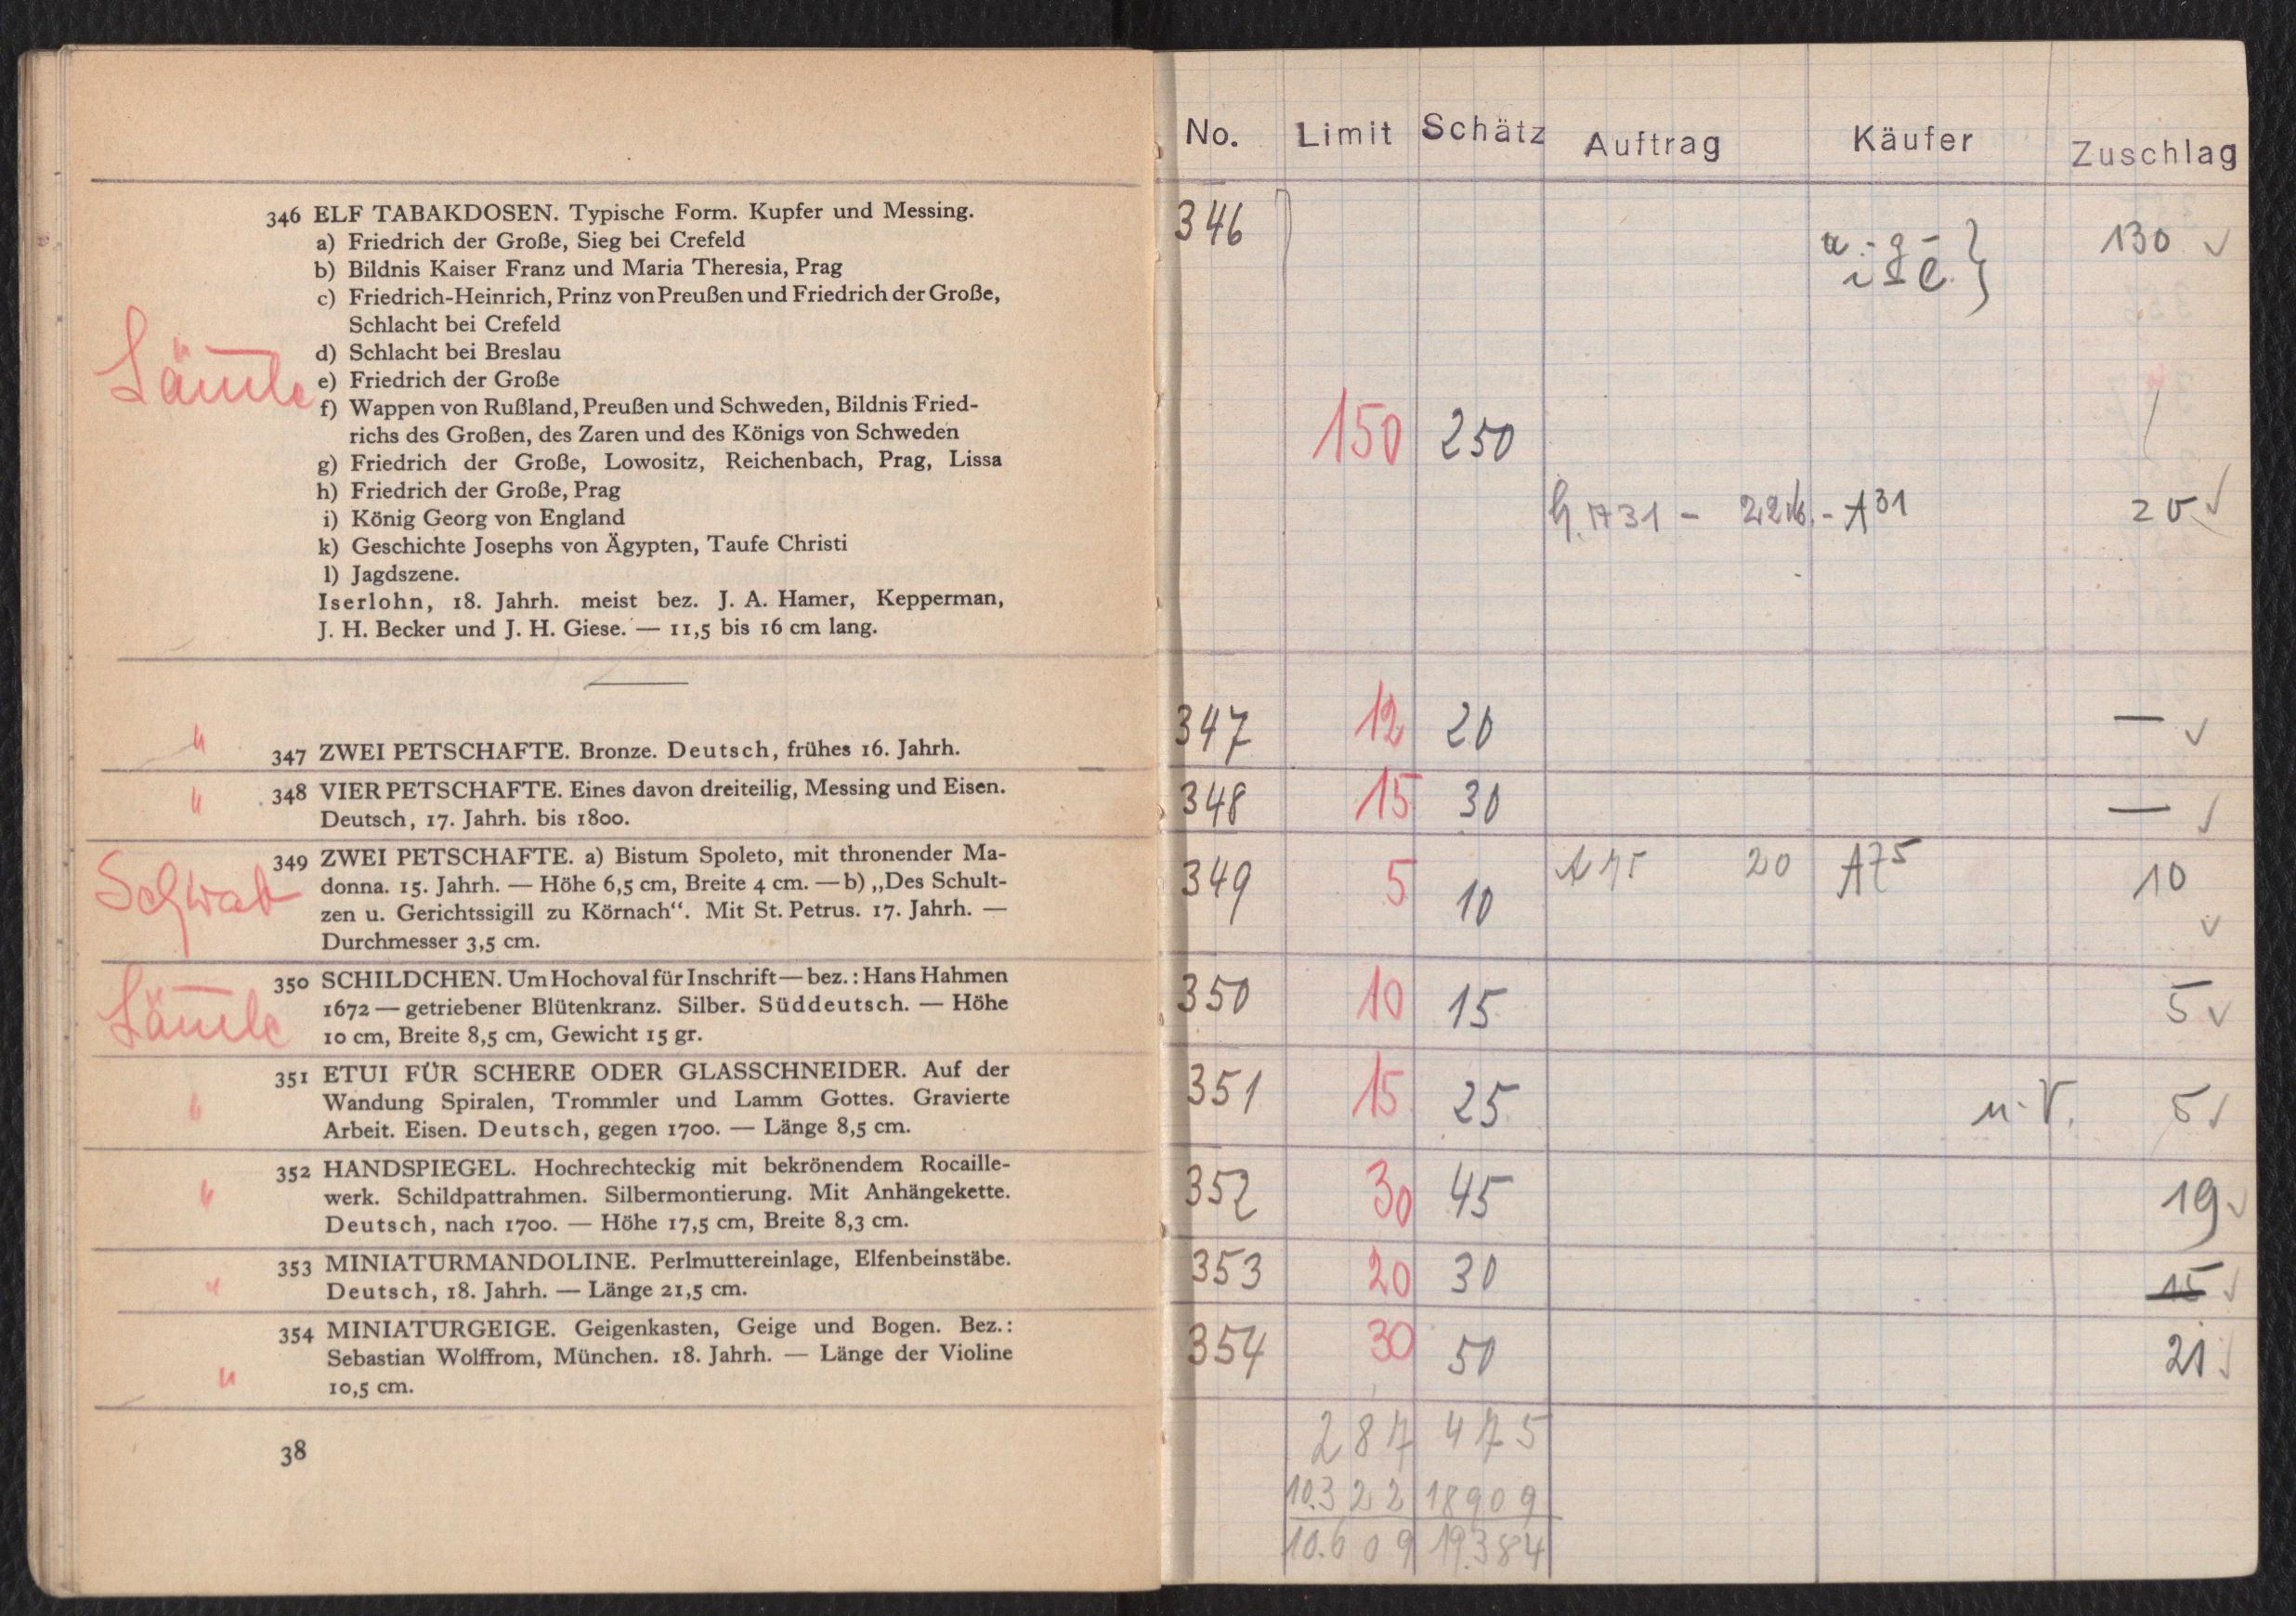 346 ELF TABAKDOSEN. Typische Form. Kupfer und Messing.
a) Friedrich der Große, Sieg bei Crefeld
b) Bildnis Kaiser Franz und Maria Theresia, Prag
c) Friedrich-Heinrich, Prinz von Preußen und Friedrich der Große,
Schlacht bei Crefeld
d) Schlacht bei Breslau
e) Friedrich der Große
f) Wappen von Rußland, Preußen und Schweden, Bildnis Fried-
richs des Großen, des Zaren und des Königs von Schweden
g) Friedrich der Große, Lowositz, Reichenbach, Prag, Lissa
h) Friedrich der Große, Prag
i) König Georg von England
k) Geschichte Josephs von Ägypten, Taufe Christi
l) Jagdszene.
Iserlohn, 18. Jahrh. meist bez. J. A. Hamer, Kepperman,
J. H. Becker und J. H. Giese. — 11,5 bis 16 cm lang.
" 347 ZWEI PETSCHAFTE. Bronze. Deutsch, frühes 16. Jahrh.
" 348 VIER PETSCHAFTE. Eines davon dreiteilig, Messing und Eisen.
Deutsch, 17. Jahrh. bis 1800.
Schwab
349 ZWEI PETSCHAFTE. a) Bistum Spoleto, mit thronender Ma-
donna. 15. Jahrh. — Höhe 6,5 cm, Breite 4 cm. — b) „Des Schult-
zen u. Gerichtssigill zu Körnach“. Mit St. Petrus. 17. Jahrh. —
Durchmesser 3,5 cm.
350 SCHILDCHEN. Um Hochoval für Inschrift — bez.: Hans Hahmen
1672 — getriebener Blütenkranz. Silber. Süddeutsch. — Höhe
10 cm, Breite 8,5 cm, Gewicht 15 gr.
" 351 ETUI FÜR SCHERE ODER GLASSCHNEIDER. Auf der
Wandung Spiralen, Trommler und Lamm Gottes. Gravierte
Arbeit. Eisen. Deutsch, gegen 1700. — Länge 8,5 cm.
" 352 HANDSPIEGEL. Hochrechteckig mit bekrönendem Rocaille-
werk. Schildpattrahmen. Silbermontierung. Mit Anhängekette.
Deutsch, nach 1700. — Höhe 17,5 cm, Breite 8,3 cm.
" 353 MINIATURMANDOLINE. Perlmuttereinlage, Elfenbeinstäbe.
Deutsch, 18. Jahrh. — Länge 21,5 cm.
" 354 MINIATURGEIGE. Geigenkasten, Geige und Bogen. Bez.:
Sebastian Wolffrom, München. 18. Jahrh. — Länge der Violine
10,5 cm.
38
No. Limit Schätz Auftrag Käufer Zuschlag
346 130 ✓
150 250
A31 20 ✓
347 12 20 — ✓
348 15 30 — ✓
349 5 10 A75 20 A75 10 ✓
350 10 15 5 ✓
351 15 25 u. V. 5 ✓
352 30 45 19 ✓
353 20 30 15 ✓
354 30 50 21 ✓
287 475
10.322 18909
10.609 19.384